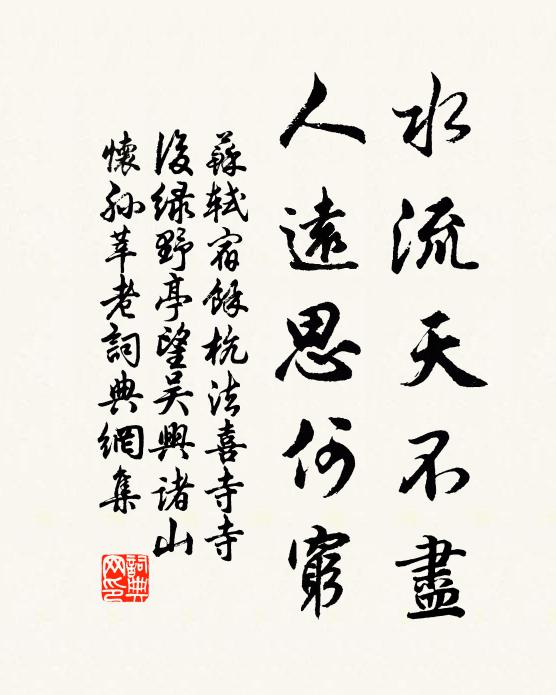 水流天不盡
人遠思何窮
蘇軾宿餘杭法喜寺寺
後緑野亭望吴興諸山
懷孙莘老詞典網集
詞典网印